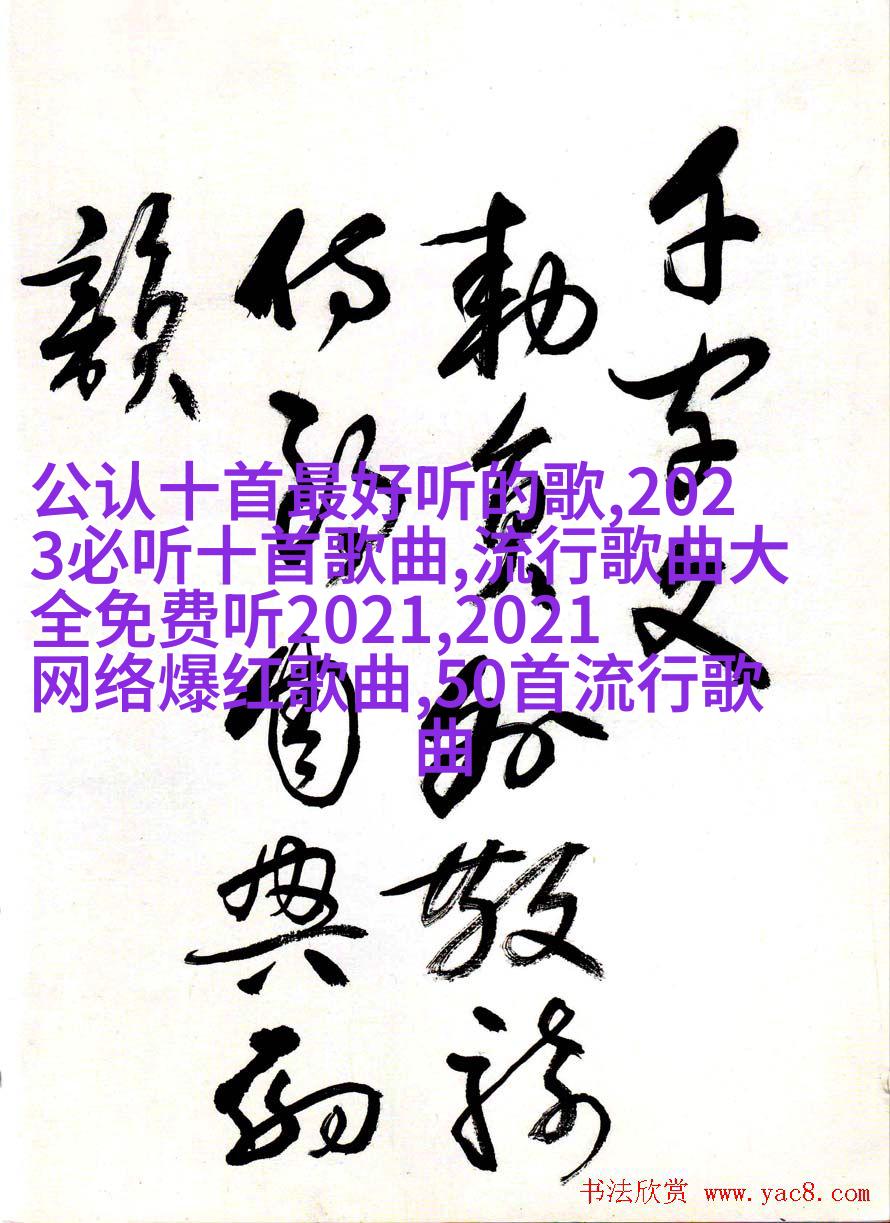 千字文
敕员外散骑
侍郎周兴嗣
韵
公认十首最好听的歌,202
3必听十首歌曲,流行歌曲大
全免费听2021,2021
网络爆红歌曲,50首流行歌
曲
书法欣赏 www.yac8.com